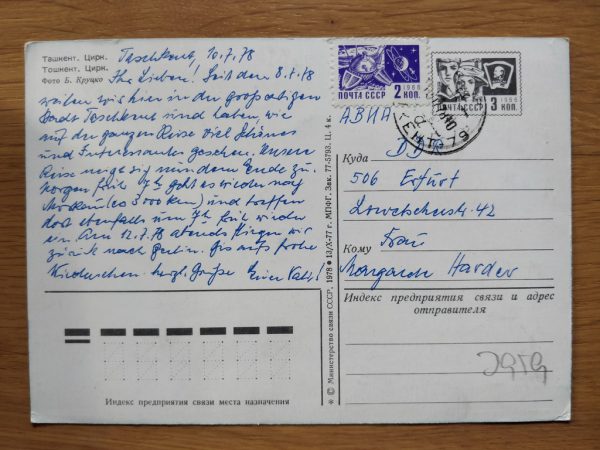 Ташкент. Цирк.
Тошкент. Цирк.
Фото Б. Круцко
Taschkent, 10.7.78
Ihr Lieben! Seit dem 8.7.78
weilen wir hier in der großartigen
Stadt Taschkent und haben, wie
auf der ganzen Reise viel Schönes
und Interessantes gesehen. Unsere
Reise neigt sich nun dem Ende zu.
Morgen früh 7h geht es wieder nach
Moskau (ca 3000 km) und treffen
dort ebenfalls um 7h früh wieder
ein. Am 12.7.78 abends fliegen wir
zurück nach Berlin. Bis aufs frohe
Wiedersehen herzl. Grüße Euer
Индекс предприятия связи места назначения
* © Министерство связи СССР. 1978 * 13/X-77 г. МПФГ. Зак. 77-5793. Ц. 4 к.
ПОЧТА СССР 1966 2 КОП.
ПОЧТА СССР 1966 3 КОП.
АВИА
DDR
Куда
506 Erfurt
42
Кому
Frau
Margarete Harder
Индекс предприятия связи и адрес
отправителя